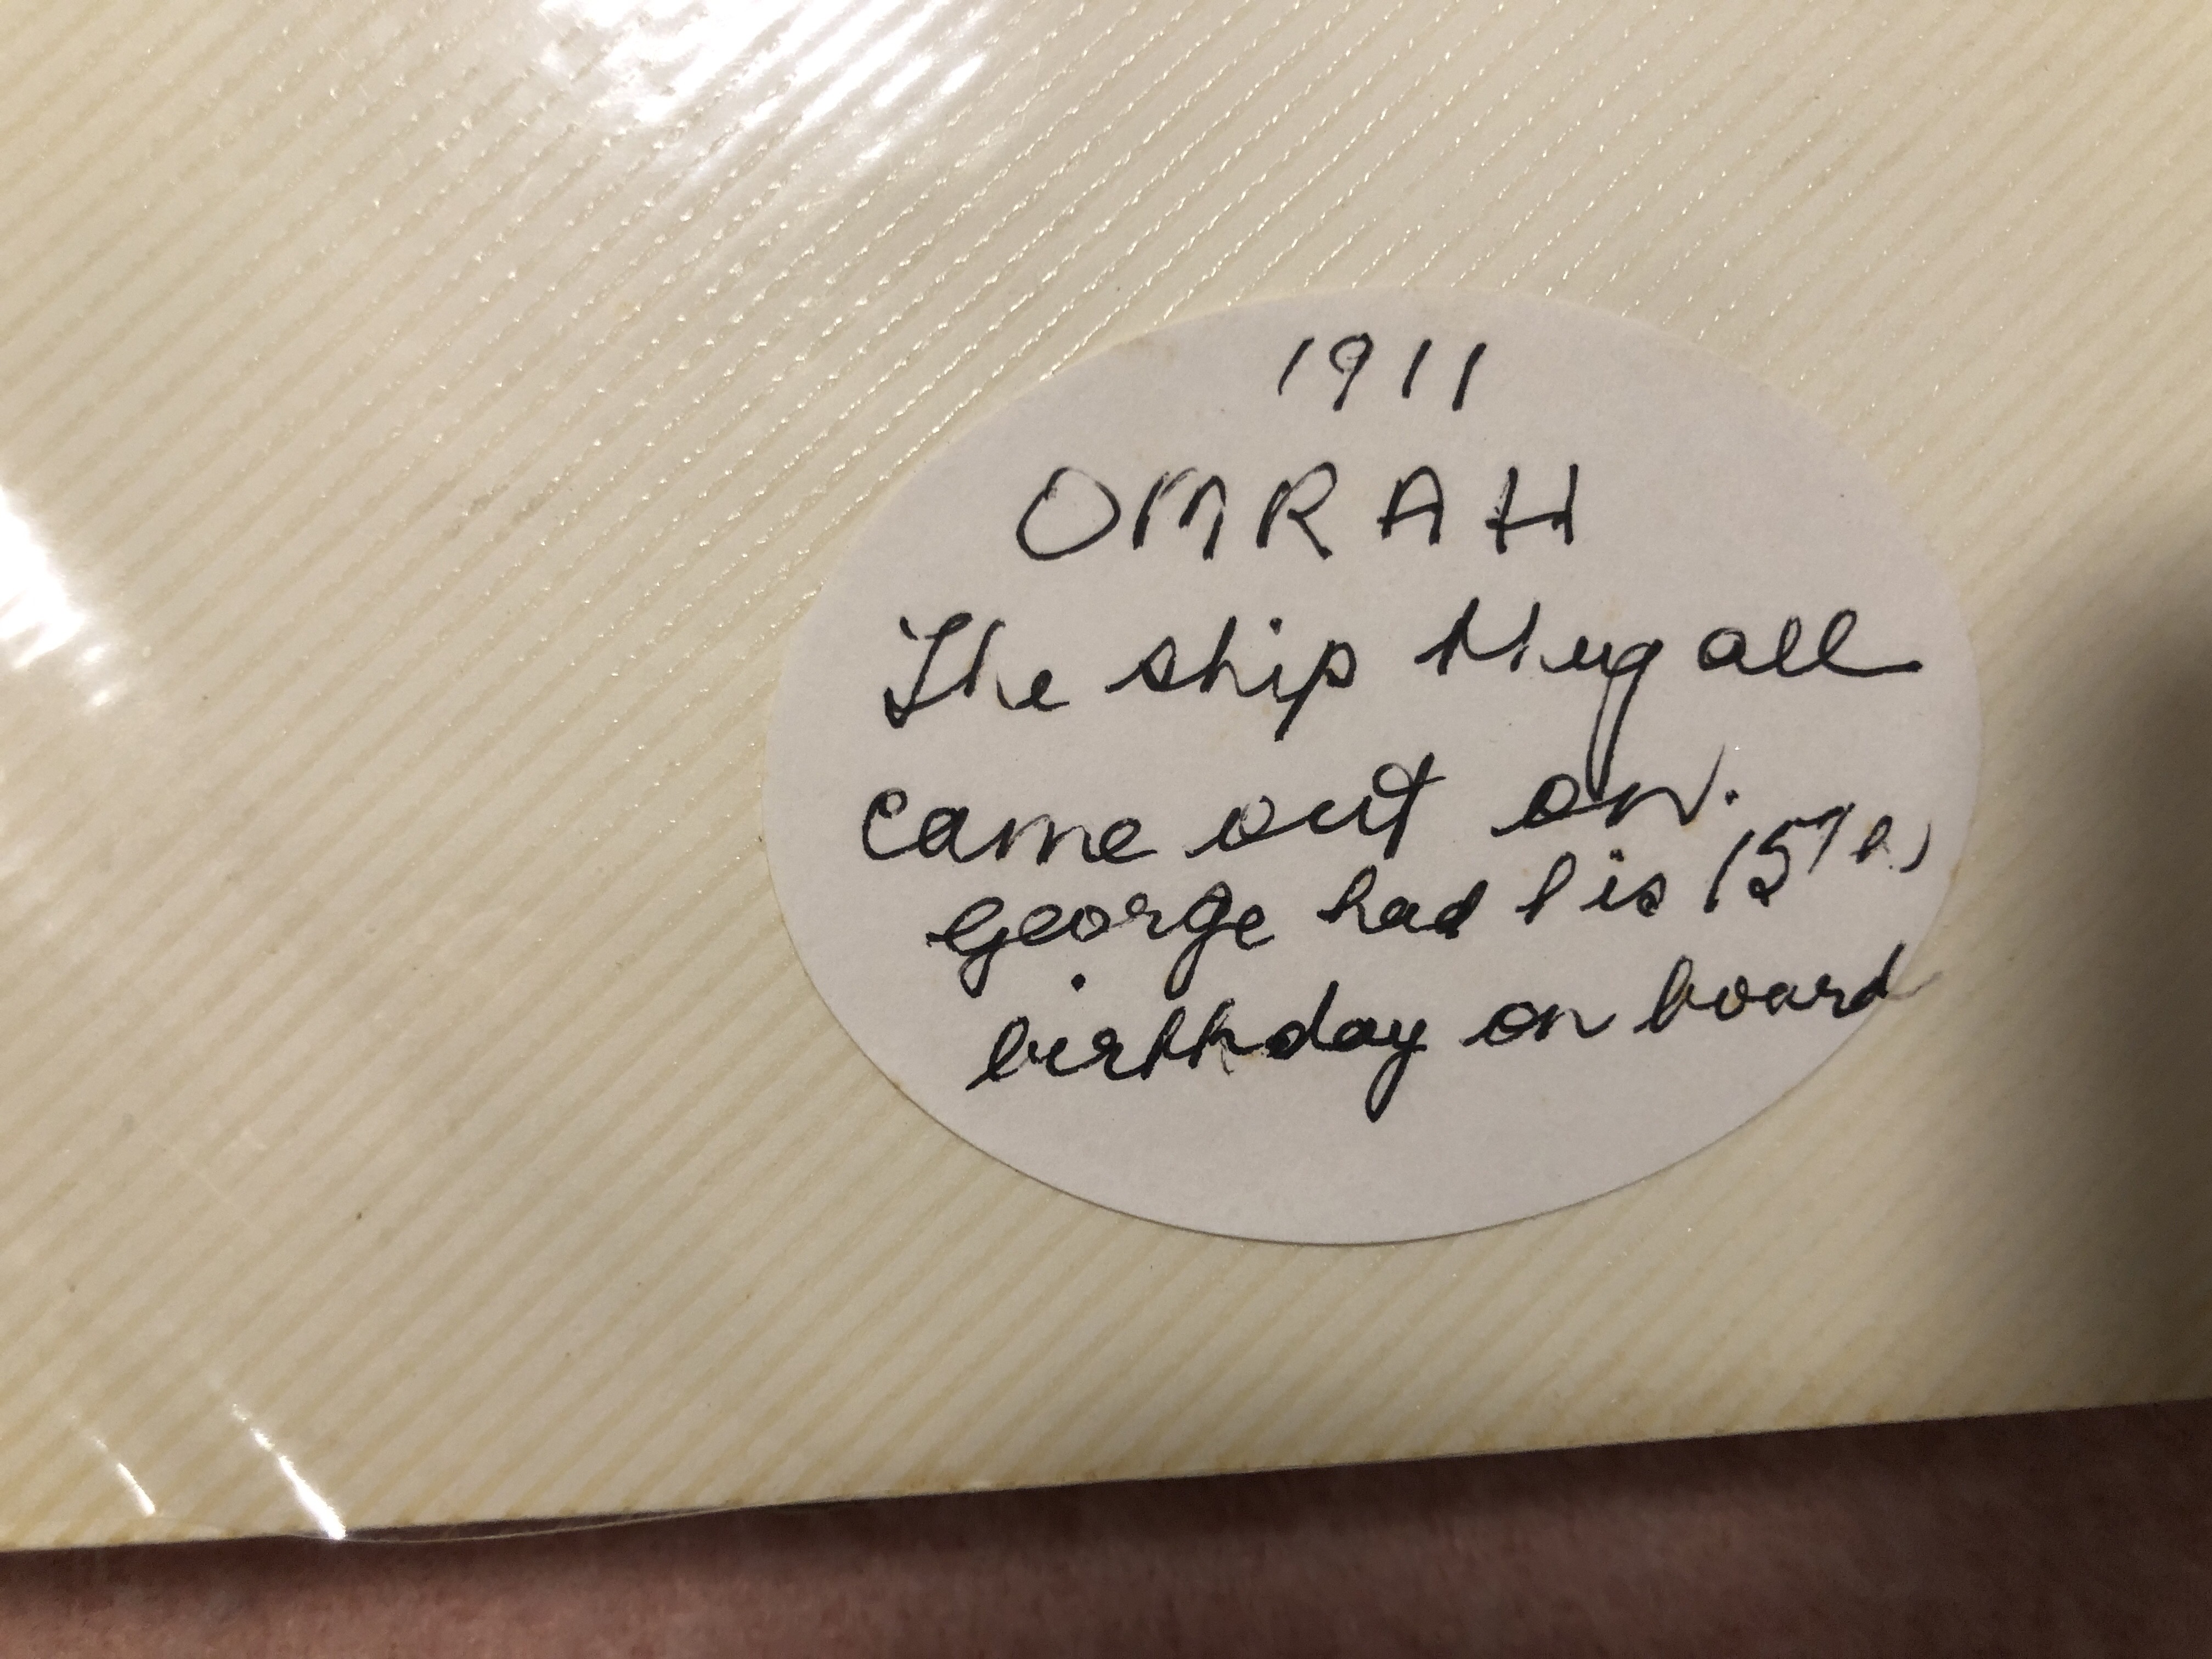 1911
OMRAH
The ship they all
came out on.
George had his 15th
birthday on board